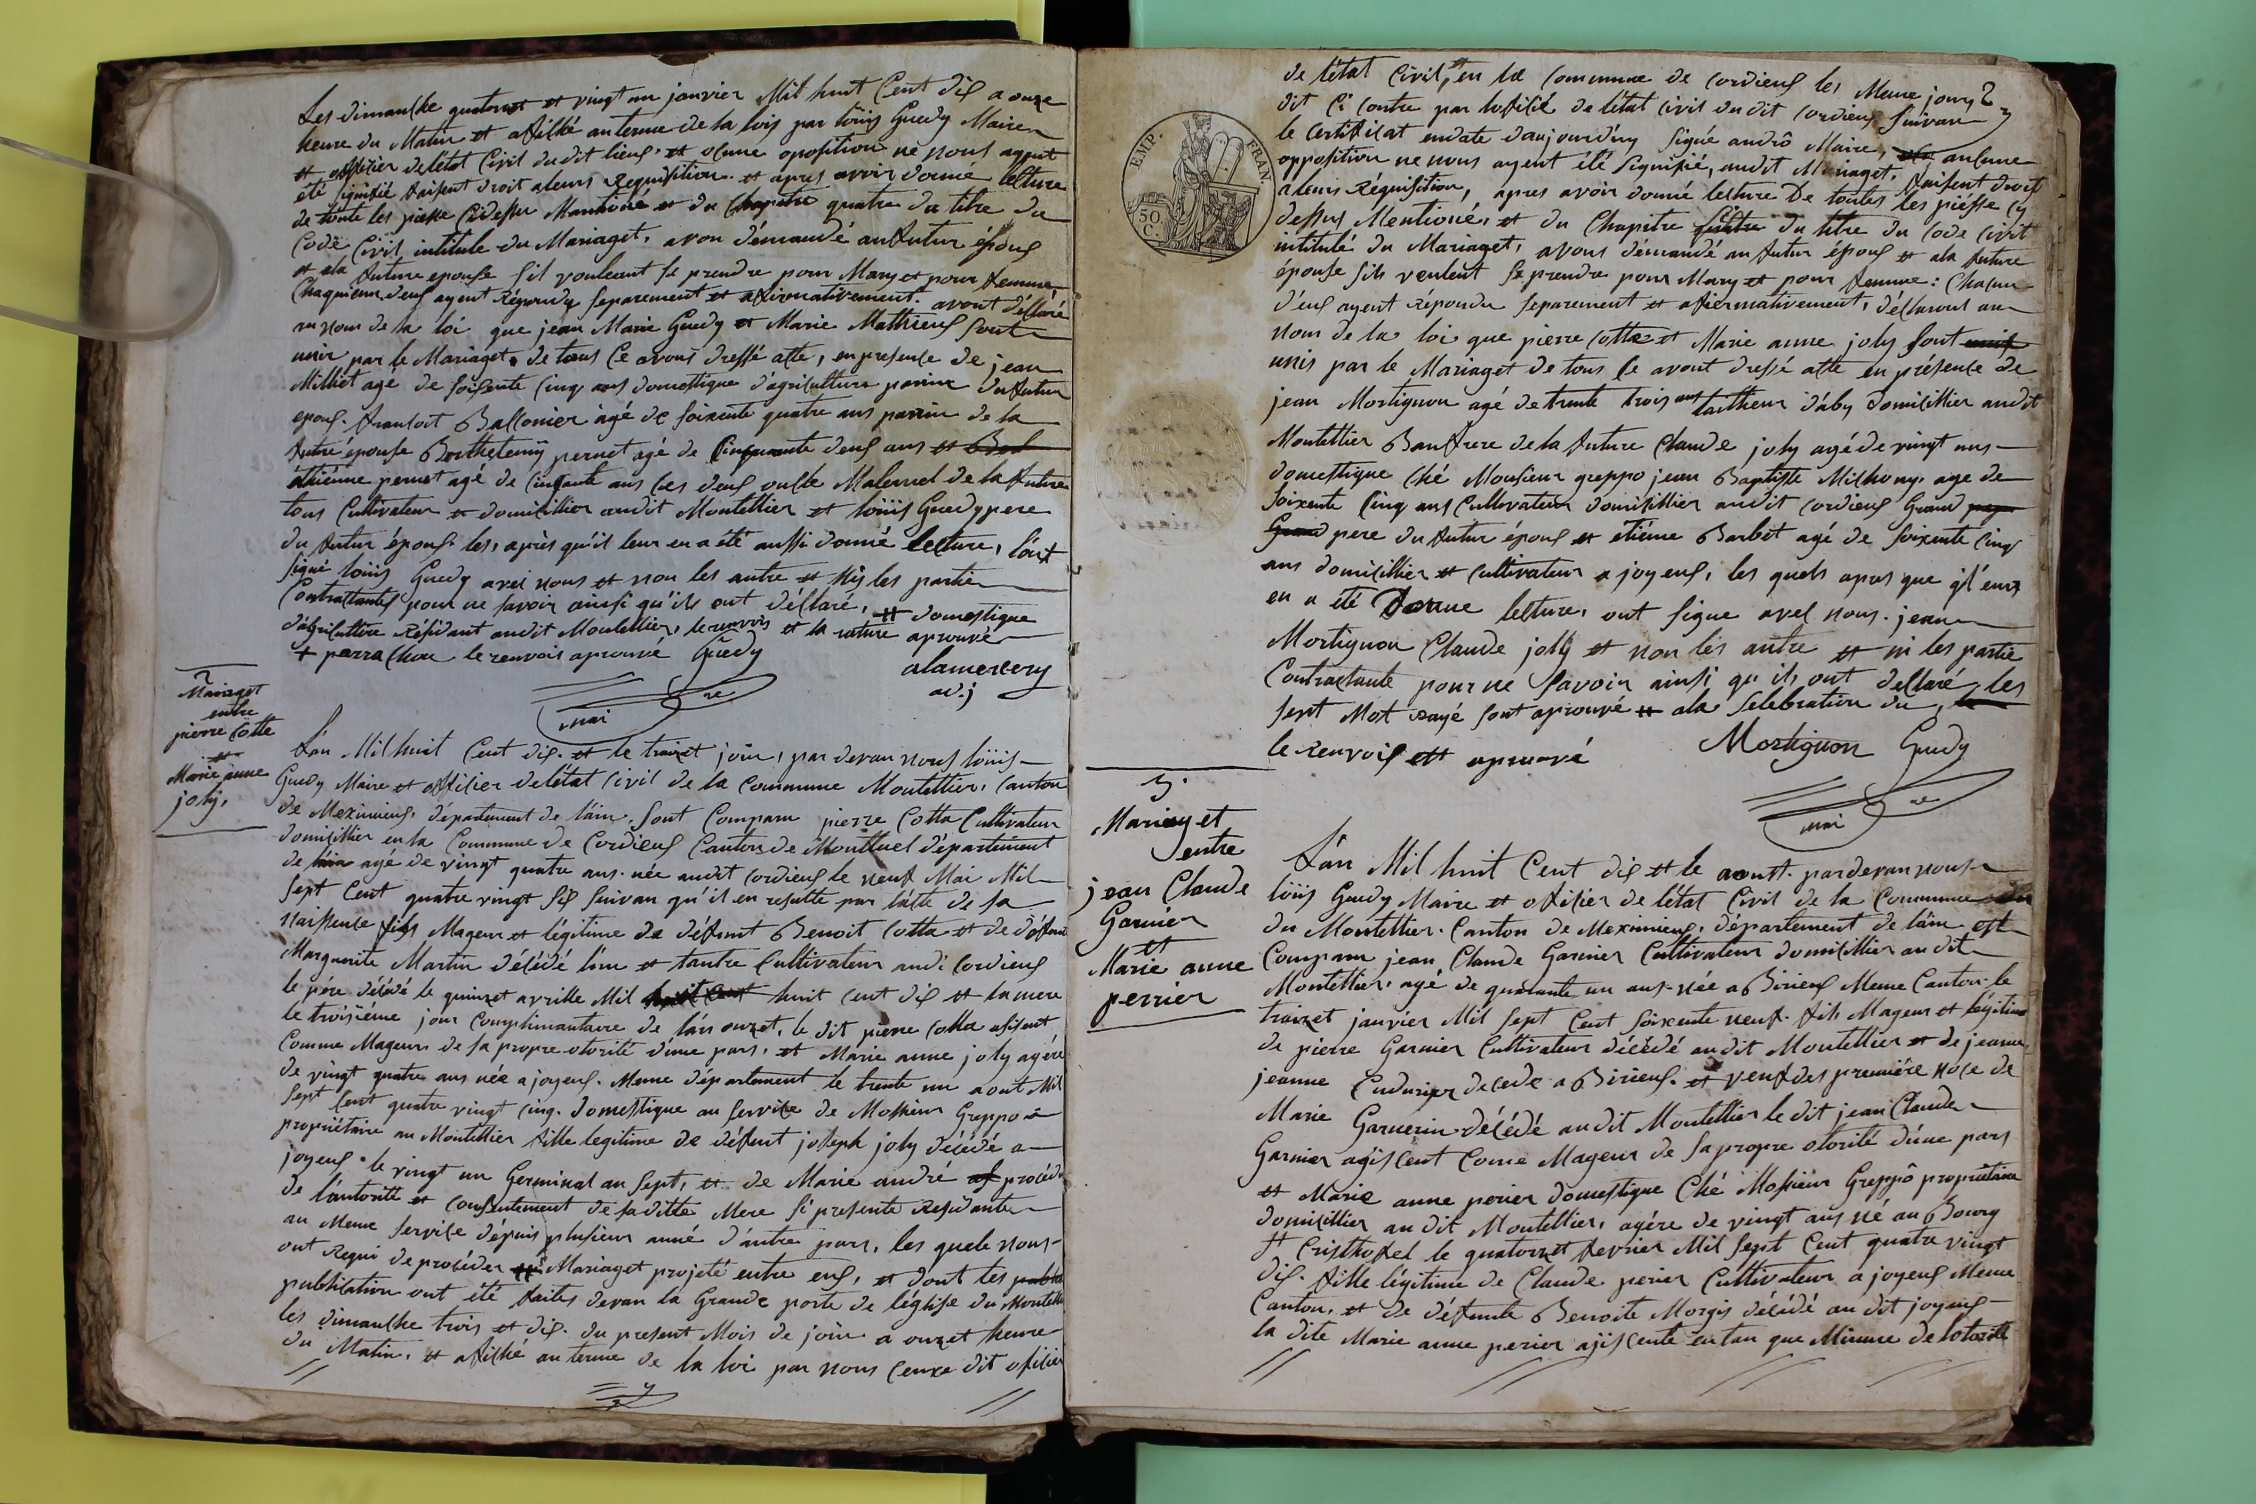 Les dimanche quatorzet et vingt un janvier Mil huit Cent dix a onze
heure du Matin et afiché au terme de la lois par loüis Guedy Maire
et officier de létat Civil du dit lieux, et oqune oposition ne nous ayent
été signifié faisent droit a leurs Requisition. et apres avoir donné lecture
de toute les piesse Cidessu Mantioné et du Chapitre quatre du titre du
Code Civil intitule du Mariaget, avon démandé au futur époux
et ala future epouse sil vouleent se prendre pour Mary et pour femme,
Chaquieun d'eux ayent Répondu separement et afirmativement. avont décllaré
au nom de la loi que jean Marie Guedy et Marie Mathieux sont
unir par le Mariaget. de tous Ce avons dressé atte, en presence de jean
Milliet agé de soisente Cinq ans domestique d'agriculture parins du futur
epoux. franсoit Ballonier agé de soixente quatre ans parrin de la
futre épouse Berthelemÿ pernet agé de Cinquante deux ans et
étiénne pernet agé de Cinqante ans les deux oncle Maternel de la future
tous Cultivateur et domicillier audit Montellier et loüis Guedy pere
du futur époux. les, après qu'il leur en a été aussi donné lecture, l'ont
signé loüis Guedy avec nous et non les autre et Nÿ les partie
Contractantes pour ne savoir ainsi qu'ils ont décllaré, # domestique
d'agriculture Résidant audit Montellier, le renvois et la rature aprouvé
+ parrachou le renvois aprouvé Guedy
alamercery
adj
mai re
2
Mariaget
entre
pierre Cotte
et
Marie anne
joly,
L'an Mil huit Cent dix. et le traizet join, par devan nous loüis
Guedy Maire et officier de létat Civil de la Commune Montellier, Canton
de Meximieux, département de láin, sont Comparu pierre Cotta Cultivateur
domicillier en la Commune de Cordieux Canton de Montluel département
de láin agé de vingt quatre ans. née audit Cordieux le neuf Mai Mil
sept Cent quatre vingt six suivan qu'il en resulte par lácte de sa
naissence fils Mageur et légitime de défunt Benoit Cotta et de défunt
Marguerite Martin décédé lún et láutre Cultivateur audi Cordieux
le pére décédé le quinzet avrille Mil huit cent dix et la mere
le troisième jour Complimantaire de lán onzet, le dit pierre Cotta
Comme Mageur de sa propre otorité d'une pars, et Marie anne joly agére
de vingt quatre ans née a joyeux. Meme département le trente un aout Mil
sept Cent quatre vingt cinq. domestique au service de Mossieur Greppo
propriétaire au Montellier fille legitime de défunt joseph joly décédé a
joyeux le vingt un Germinal an sept, et de Marie andré procédé
de l'autorité et Consentement de sa ditte Mere si presente Residante
au Meme service dépuis plusieur anné d'autre pars, les quels nous
ont Requi de procéder # Mariaget projeté entre eux, et dont les
publication ont été faites devan la Grande porte de léglise du Montellier
les dimanche trois et dix. du present Mois de join a onzet heure
du Matin, et afiché au terme de la loi par nous dit oficier
de létat Civil, et en la Commune de Cordieux les Meme jours
dit Ci Contre par lofisié de létat Civil du dit Cordieux suivan
le Certificat endate daujourdúy signé andrô Maire, aucune
opposition ne nous ayent été signifié, audit Mariaget. faisent droit
a leurs Réquisition, apres avoir donné lecture De toutes les piesse cy
dessus Mentioné, et du Chapitre du titre du Code Civil
intitulé du Mariaget, avons démandé au futur époux et ala future
épouse sils veulent se prendre pour Mary et pour femme: Chacun
d'eux ayent répondu separement et afiermativement, décllarons au
nom de la loi que pierre Cotta et Marie anne joly sont
unis par le Mariaget de tous ce avont dressé atte en présence de
jean Mortignon agé de trente trois ans tailheur d'aby domicillier audit
Montellier Baufrere de la future Claude joly agé de vingt ans
domestique Ché Monsieur greppo jean Baptiste Milhony agé de
soixente Cinq ans Cultivateur domisillier audit Cordieux Grand
pere du futur époux et étiénne Barbet agé de soixente Cinq
ans domicillier et cultivateur a joyeux, les quels apres que
en a été Donne lecture, ont signe avec nous. jean
Mortignon Claude joly et non les autre et ni les partie
Contractante pour ne savoir ainsi qu'ils ont decllaré, les
sept Mot rayé sont aprouvé # ala selebration du,
le Renvoix est aprouvé Mortignon Guedy
mai re
EMP. FRAN.
50
C.
3.
Mariaget
entre
jean Claude
Garnier
et
Marie anne
perrier
L'an Mil huit Cent dix et le aoust. par devan nous
loüis Guedy Maire et oficier de létat Civil de la Commune
du Montellier. Canton de Meximieux, département de láin est
Comparu jean Claude Garnier Cultivateur domicillier au dit
Montellier, agé de quarante un ans. née a Birieux Meme Canton le
traizet janvier Mil sept Cent soixente neuf. fils Mageur et légitime
de pierre Garnier Cultivateur décédé audit Montellier et de jeanne
jeanne décédé a Birieux. et veuf des première noce de
Marie Garnerin décédé audit Montellier le dit jean Claude
Garnier agiscent Come Mageur de sa propre otorité d'une pars
et Marie anne perier domestique Ché Mossieur Greppô propriétaire
domicillier au dit Montellier, agére de vingt ans né au Bourg
St Cristhofel le quatorzet fevrier Mil sept Cent quatre vingt
dix. fille légitime de Claude perier Cultivateur a joyeux Meme
Canton, et de défunte Benoite Morgis décédé au dit joyeux
la dite Marie anne perier ajiscente en tan que Mineure de lotorité